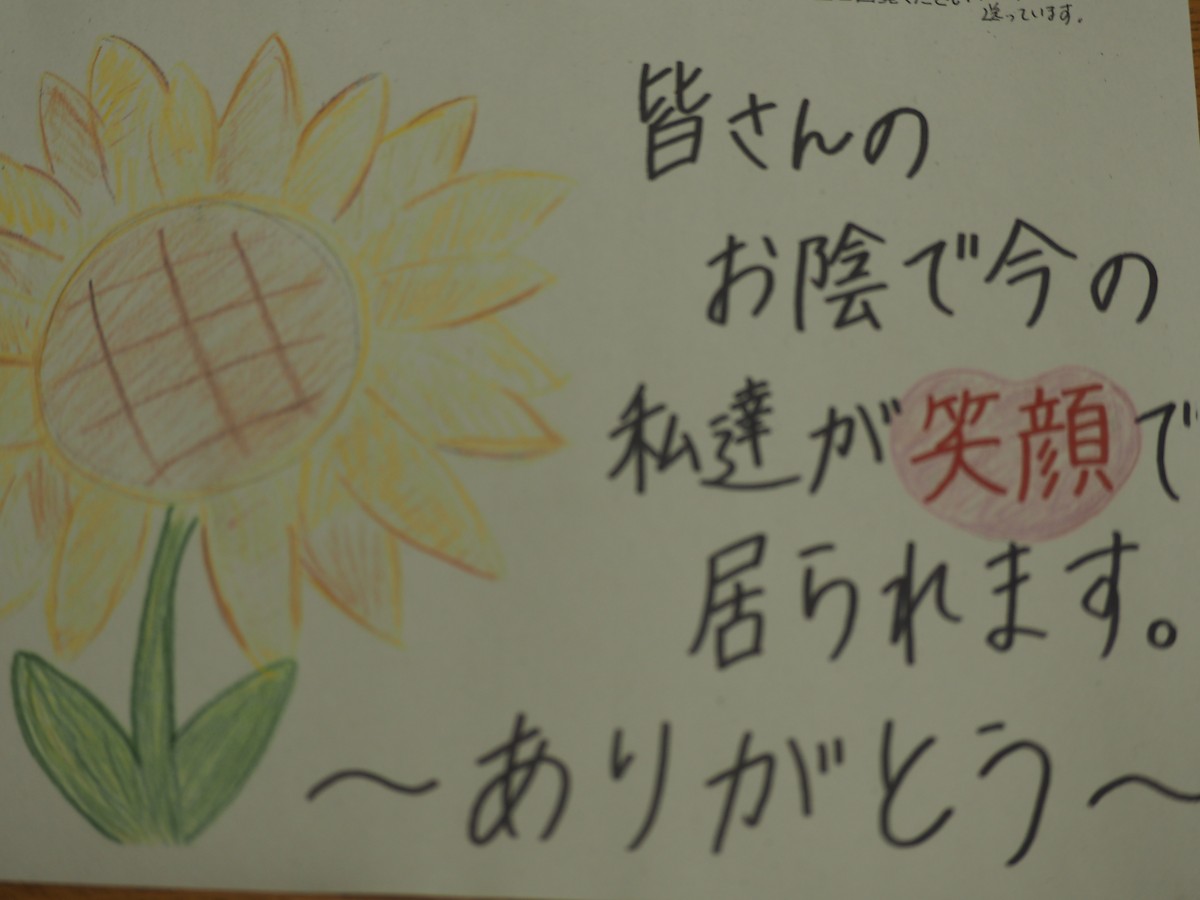 送っています。
皆さんの
お陰で今の
私達が笑顔で
居られます。
～ありがとう～